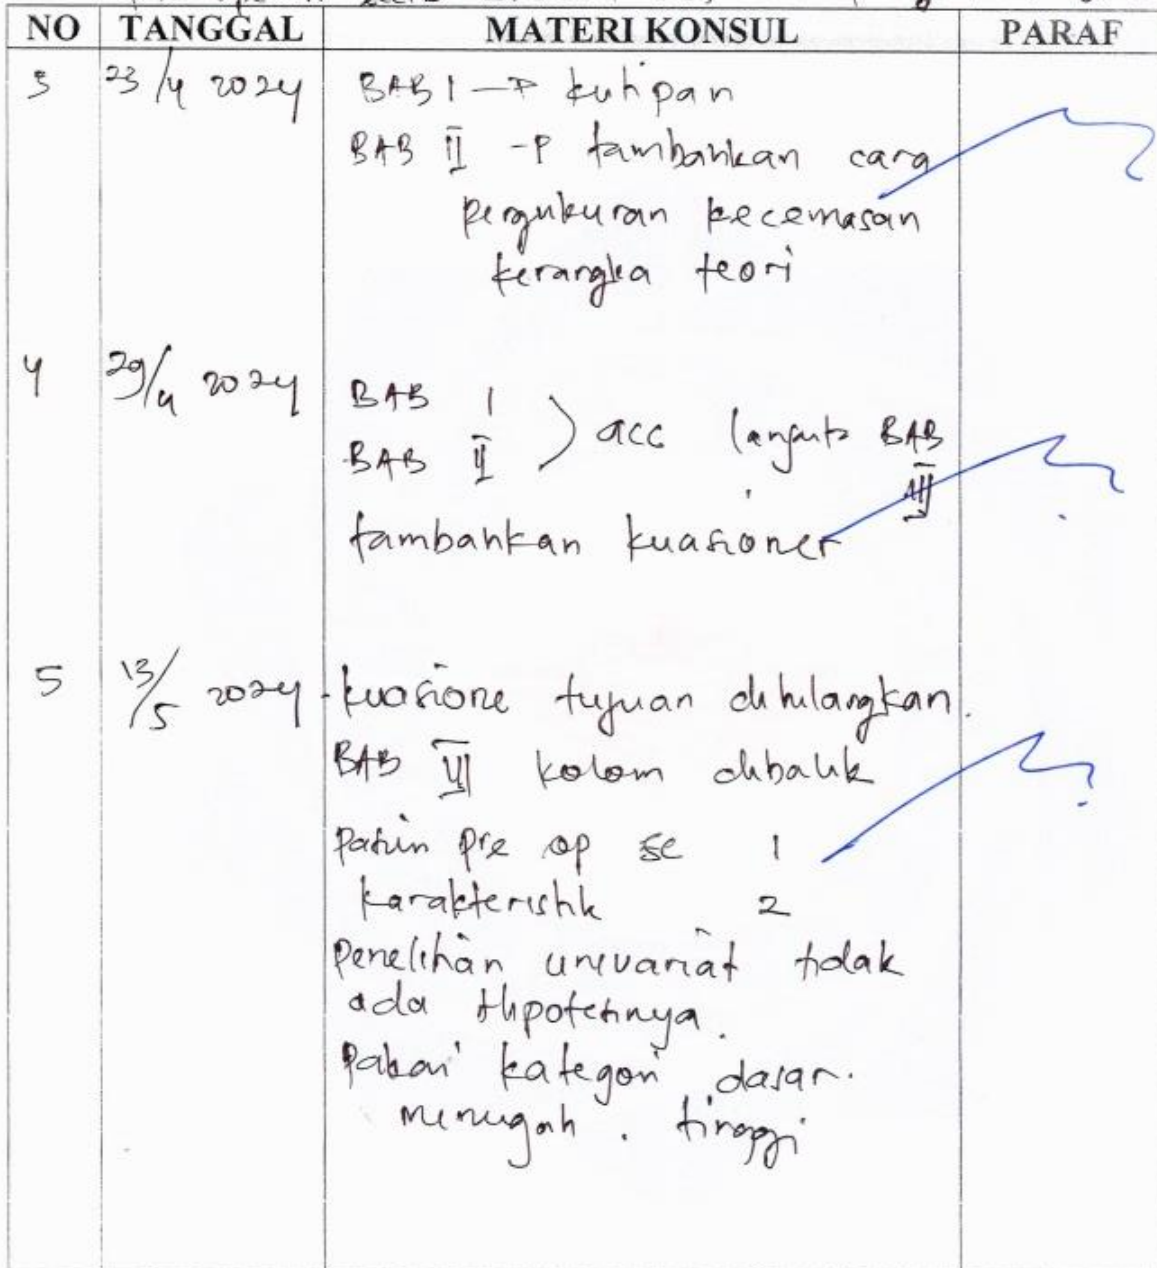 NO TANGGAL MATERI KONSUL PARAF
3 23/4 2024 BAB I → kutipan
BAB II → tambahkan cara
pengukuran kecemasan
kerangka teori
4 29/4 2024 BAB I
BAB II ) acc lanjut BAB
III
tambahkan kuasioner
5 13/5 2024 - kuasione tujuan dihilangkan.
BAB III kolom dibalik
Pasien pre op SC 1
karakteristik 2
Penelitian univariat tidak
ada Hipotesinya.
Pakai kategori dasar.
menengah. tinggi